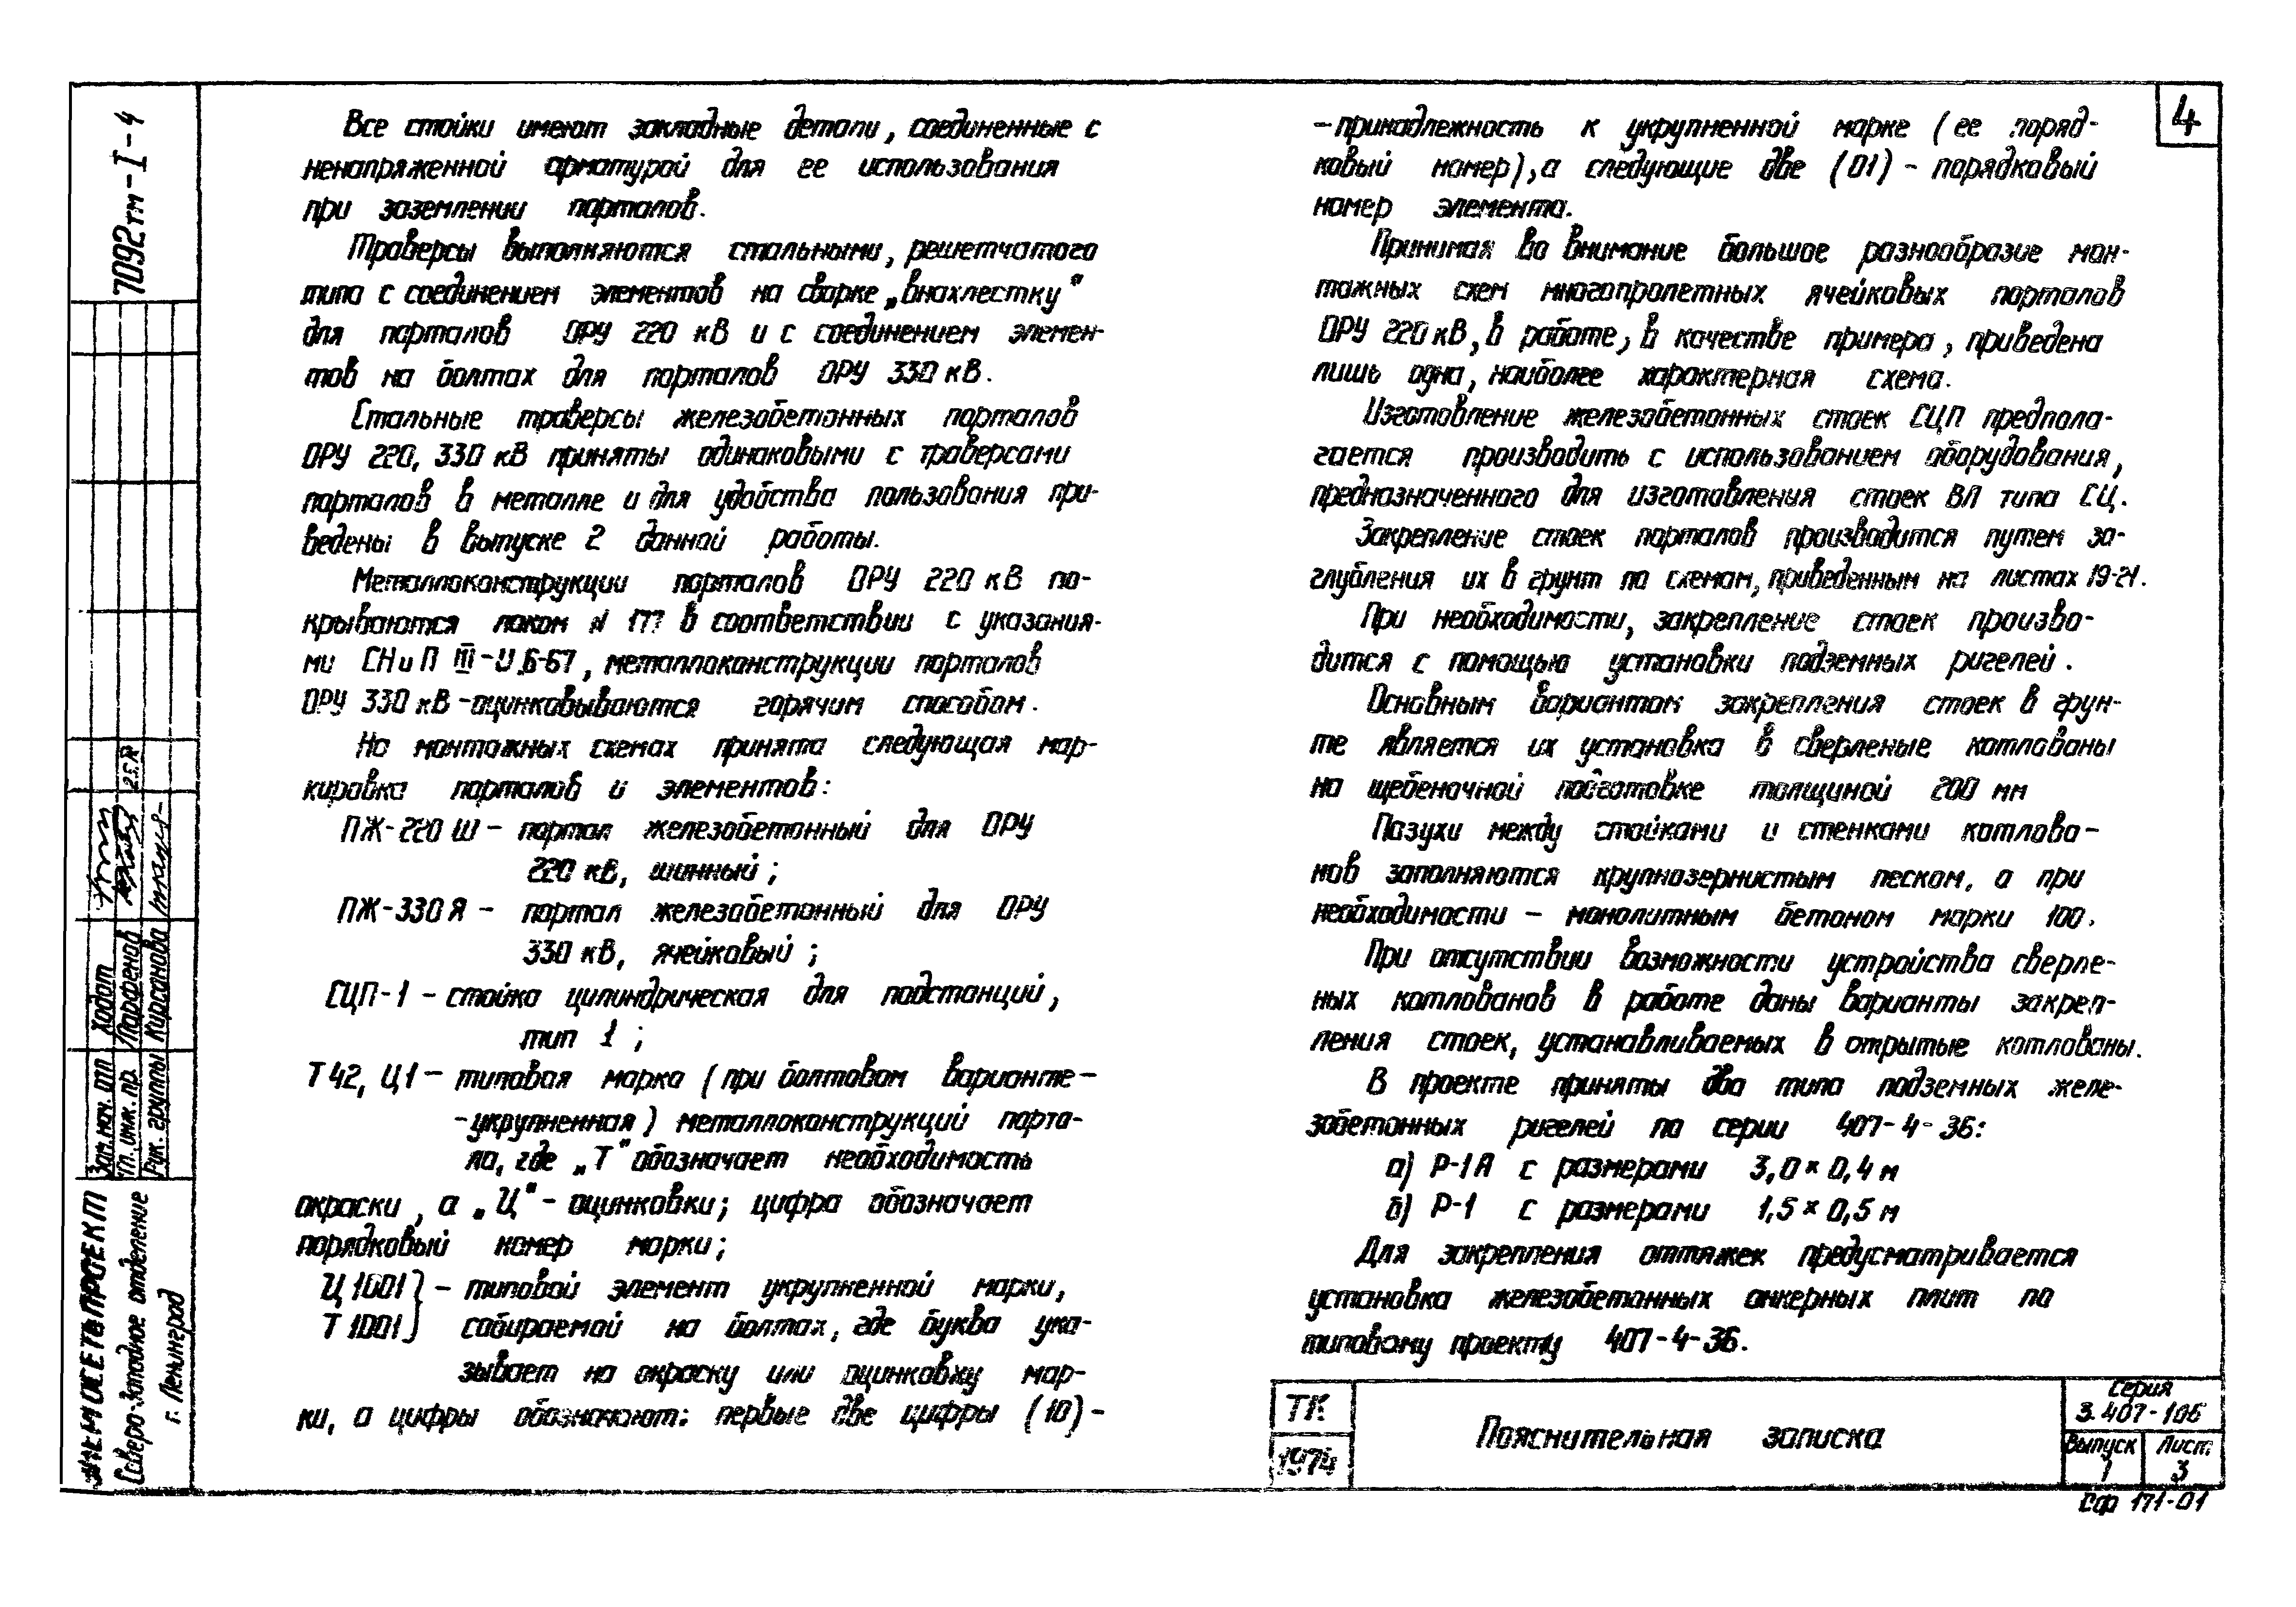 Все стойки имеют закладные детали, соединенные с
ненапряженной арматурой для ее использования
при заземлении порталов.
Траверсы выполняются стальными, решетчатого
типа с соединением элементов на сварке „внахлестку"
для порталов ОРУ 220 кВ и с соединением элемен-
тов на болтах для порталов ОРУ 330 кВ.
Стальные траверсы железобетонных порталов
ОРУ 220, 330 кВ приняты одинаковыми с траверсами
порталов в металле и для удобства пользования при-
ведены в выпуске 2 данной работы.
Металлоконструкции порталов ОРУ 220 кВ по-
крываются лаком № 177 в соответствии с указания-
ми СНиП III-И.6-67, металлоконструкции порталов
ОРУ 330 кВ - оцинковываются горячим способом.
На монтажных схемах принята следующая мар-
кировка порталов и элементов:
ПЖ-220 Ш - портал железобетонный для ОРУ
220 кВ, шинный;
ПЖ-330 Я - портал железобетонный для ОРУ
330 кВ, ячейковый;
СЦП-1 - стойка цилиндрическая для подстанций,
тип 1;
Т42, Ц1 - типовая марка (при болтовом варианте -
- укрупненная) металлоконструкций порта-
ла, где „Т" обозначает необходимость
окраски, а „Ц" - оцинковки; цифра обозначает
порядковый номер марки;
Ц 1001 } - типовой элемент укрупненной марки,
Т 1001 } собираемой на болтах, где буква ука-
зывает на окраску или оцинковку мар-
ки, а цифры обозначают: первые две цифры (10) -
- принадлежность к укрупненной марке (ее поряд-
ковый номер), а следующие две (01) - порядковый
номер элемента.
Принимая во внимание большое разнообразие мон-
тажных схем многопролетных ячейковых порталов
ОРУ 220 кВ, в работе, в качестве примера, приведена
лишь одна, наиболее характерная схема.
Изготовление железобетонных стоек СЦП предпола-
гается производить с использованием оборудования,
предназначенного для изготовления стоек ВЛ типа СЦ.
Закрепление стоек порталов производится путем за-
глубления их в грунт по схемам, приведенным на листах 19-21.
При необходимости, закрепление стоек произво-
дится с помощью установки подземных ригелей.
Основным вариантом закрепления стоек в грун-
те является их установка в сверленые котлованы
на щебеночной подготовке толщиной 200 мм
Пазухи между стойками и стенками котлова-
нов заполняются крупнозернистым песком, а при
необходимости - монолитным бетоном марки 100.
При отсутствии возможности устройства сверле-
ных котлованов в работе даны варианты закреп-
ления стоек, устанавливаемых в открытые котлованы.
В проекте приняты два типа подземных желе-
зобетонных ригелей по серии 407-4-36:
а) Р-1А с размерами 3,0 × 0,4 м
б) Р-1 с размерами 1,5 × 0,5 м
Для закрепления оттяжек предусматривается
установка железобетонных анкерных плит по
типовому проекту 407-4-36.
4
7092тм-I-4
Зам. нач. отп Ходот
Гл. инж. пр. Парфенов
Рук. группы Кирсанова
ЭНЕРГОСЕТЬПРОЕКТ
Северо-Западное отделение
г. Ленинград
ТК
1974
Пояснительная записка
Серия
3.407-106
Выпуск Лист
1 3
Сф 171-01